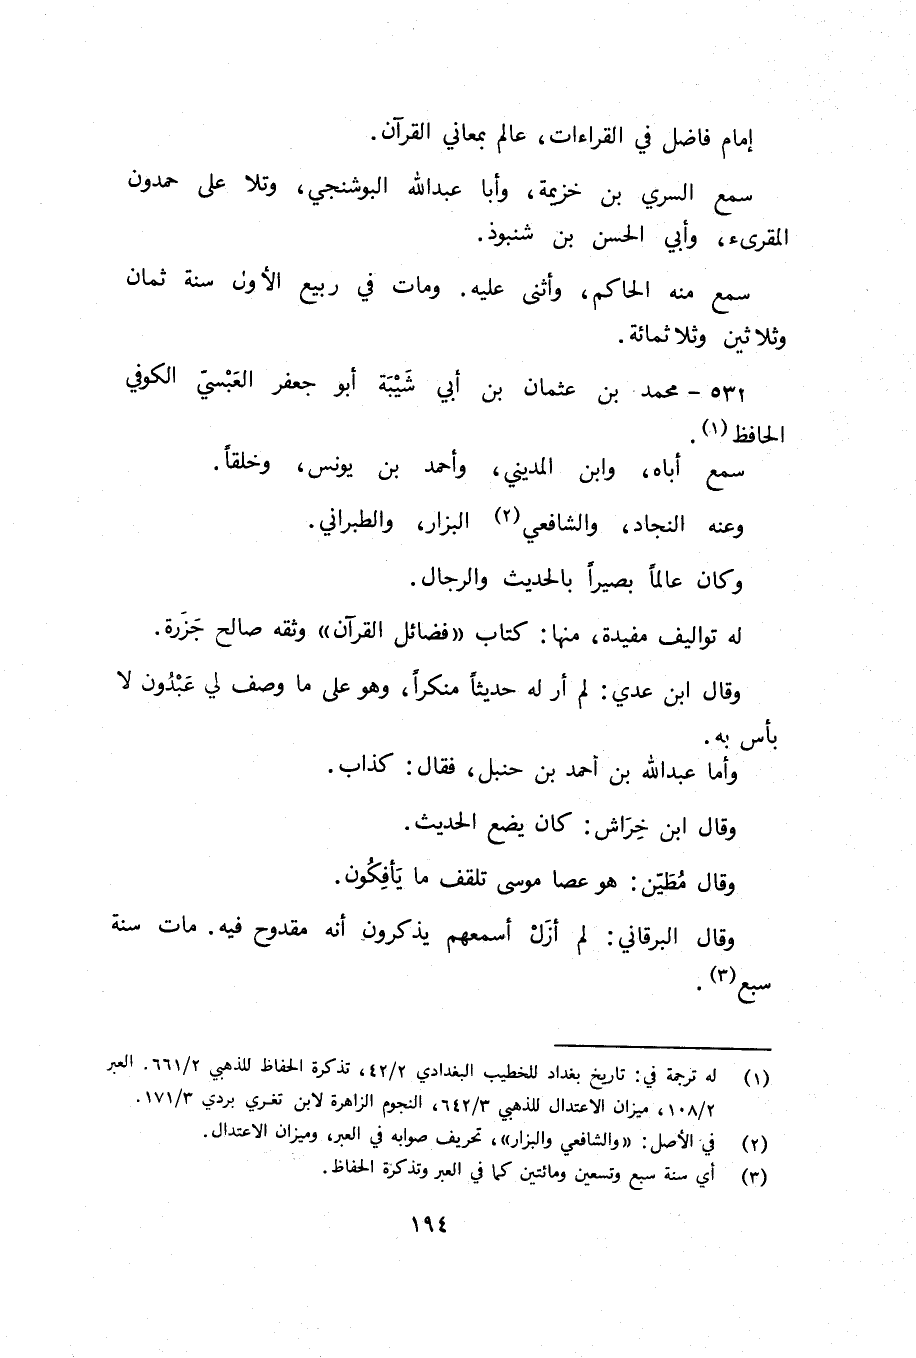 إمام فاضل في القراءات، عالم بمعاني القرآن.
سمع السري بن خزيمة، وأبا عبدالله البوشنجي، وتلا على حمدون
المقرىء، وأبي الحسن بن شنبوذ.
سمع منه الحاكم، وأثنى عليه. ومات في ربيع الأول سنة ثمان
وثلاثين وثلاثمائة.
٥٣٢ - محمد بن عثمان بن أبي شَيْبَة أبو جعفر العَبْسيّ الكوفي
الحافظ(١).
سمع أباه، وابن المديني، وأحمد بن يونس، وخلقاً.
وعنه النجاد، والشافعي(٢) البزار، والطبراني.
وكان عالماً بصيراً بالحديث والرجال.
له تواليف مفيدة، منها: كتاب «فضائل القرآن» وثقه صالح جَزَرة.
وقال ابن عدي: لم أر له حديثاً منكراً، وهو على ما وصف لي عَبْدُون لا
بأس به.
وأما عبدالله بن أحمد بن حنبل، فقال: كذاب.
وقال ابن خِرَاش: كان يضع الحديث.
وقال مُطَيّن: هو عصا موسى تلقف ما يَأفِكُون.
وقال البرقاني: لم أزَلْ أسمعهم يذكرون أنه مقدوح فيه. مات سنة
سبع(٣).
(١) له ترجمة في: تاريخ بغداد للخطيب البغدادي ٤٢/٢، تذكرة الحفاظ للذهبي ٦٦١/٢. العبر
١٠٨/٢، ميزان الاعتدال للذهبي ٦٤٢/٣، النجوم الزاهرة لابن تغري بردي ١٧١/٣.
(٢) في الأصل: «والشافعي والبزار»، تحريف صوابه في العبر، وميزان الاعتدال.
(٣) أي سنة سبع وتسعين ومائتين كما في العبر وتذكرة الحفاظ.
١٩٤